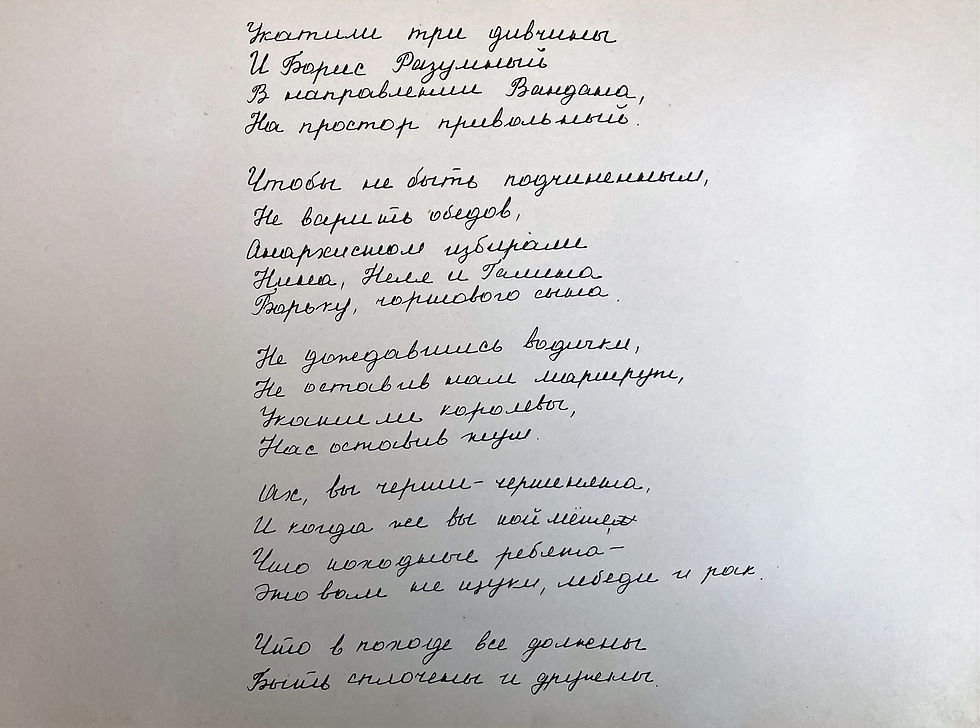 Укатили три дивчины
И Борис Разумный
В направлении Вандана,
На простор привольный.
Чтобы не быть подчиненным,
Не варить обедов,
Анархистом избирали
Нина, Неля и Галина
Борьку, чортового сына.
Не дождавшись водички,
Не оставив нам маршрут,
Укатили королевы,
Нас оставив тут.
Ах, вы черти-чертенята,
И когда же вы поймёте,
Что походные ребята –
Это вам не щуки, лебеди и рак.
Что в походе все должны
Быть сплочены и дружны.